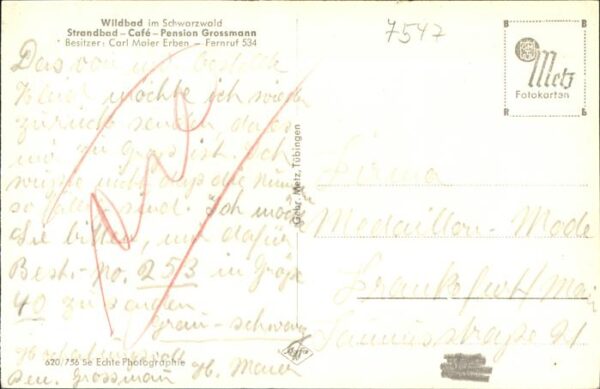 Wildbad im Schwarzwald
Strandbad - Café - Pension Grossmann
Besitzer: Carl Maier Erben - Fernruf 534
7547
B B
Metz
Fotokarten
R B
Das von mir bestellte
Kleid möchte ich wieder
zurück senden, da es
mir zu gross ist. Ich
wusste nicht dass die Nummern
so sind. Ich möchte
Sie bitten, mir dafür
Best.-No. 253 in Grösse
40 zu senden
grau-schwarz
Hochachtungsvoll
Pen. Grossmann H. Maier
Gebr. Metz, Tübingen
Firma
Medaillon-Mode
Frankfurt/Main
Taunusstraße 21
620.756 Se Echte Photographie
Agfa